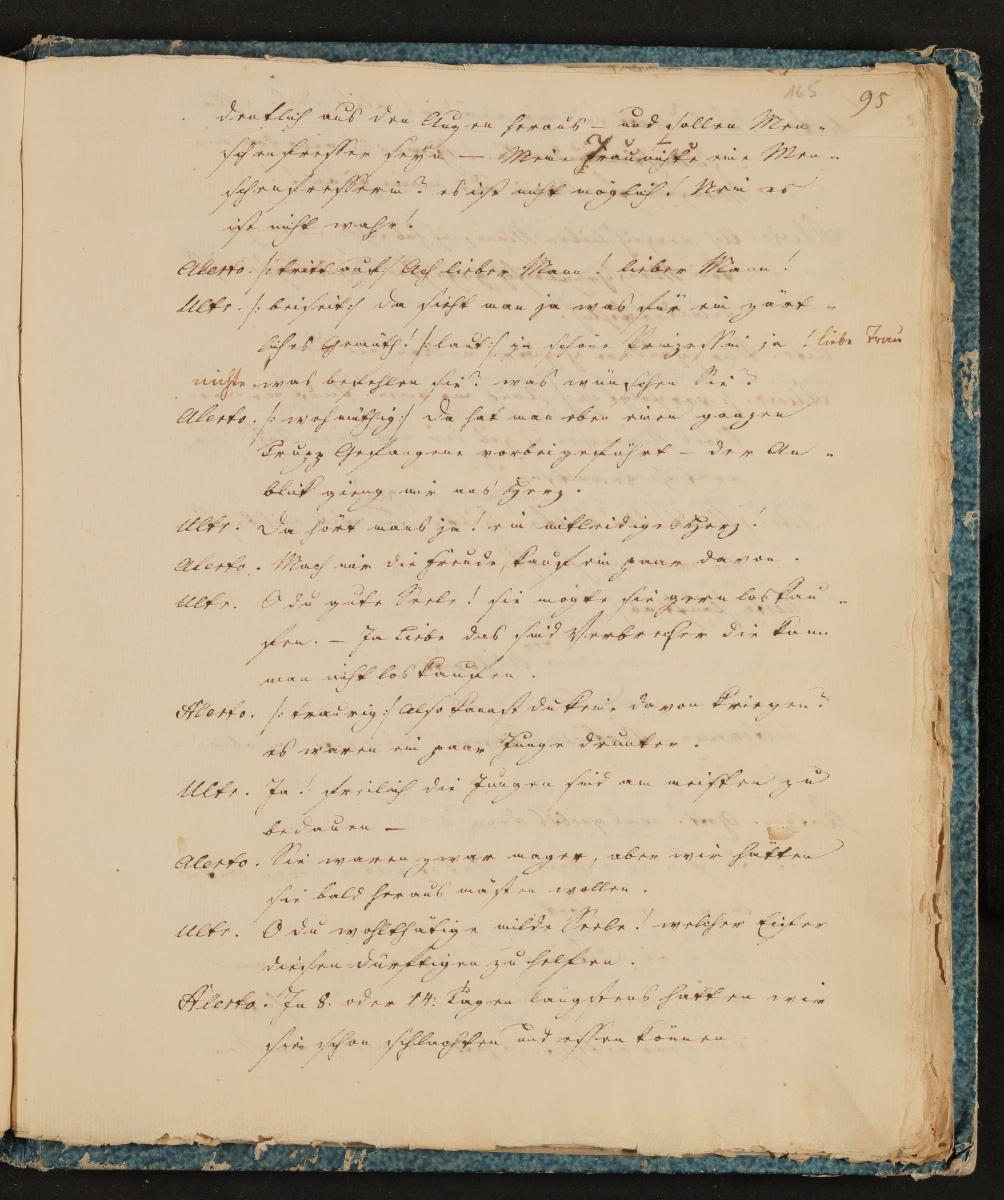 165 95
dentlich aus den Augen heraus – und sollen Men-
schenfresser seyn — Meine Frau nichte eine Men-
schenfresserin? es ist nicht möglich! Nein es
ist nicht wahr!
Alerto. /: tritt auf :/ Ach lieber Mann! lieber Mann!
Ultr. /: beiseit :/ da sieht man ja was für ein zärt-
liches Gemüth! /: laut :/ ja schöne Prinzessin ja! liebe Frau
nichte was befehlen sie? was wünschen Sie?
Alerto. /: wehmüthig :/ Da hat man eben einen ganzen
Trupp Gefangene vorbeigeführt – der An-
blick gieng mir ans Herz.
Ultr. Da hört mans ja! ein mitleidiges Herz!
Alerto. Mach mir die Freude, kauf ein paar davon.
Ultr. O du gute Seele! sie mögte sie gern loskau-
fen. – Ja Liebe das sind Verbrecher die kann
man nicht loskaufen.
Alerto. /: traurig :/ Also kannst du keine davon kriegen?
es waren ein paar Junge drunter.
Ultr. Ja! freilich die Jungen sind am meisten zu
bedauen –
Alerto. Sie waren zwar mager, aber wir hätten
sie bald heraus mästen wollen.
Ultr. O du wohlthätige milde Seele! welcher Eifer
diesen dürftigen zu helfen.
Alerto. In 8. oder 14. Tagen längstens hätten wir
sie schon schlachten und essen können